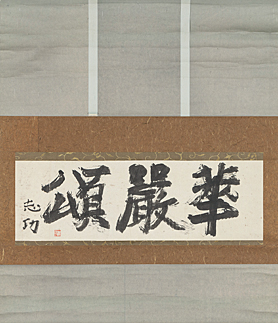 華嚴頌
志功